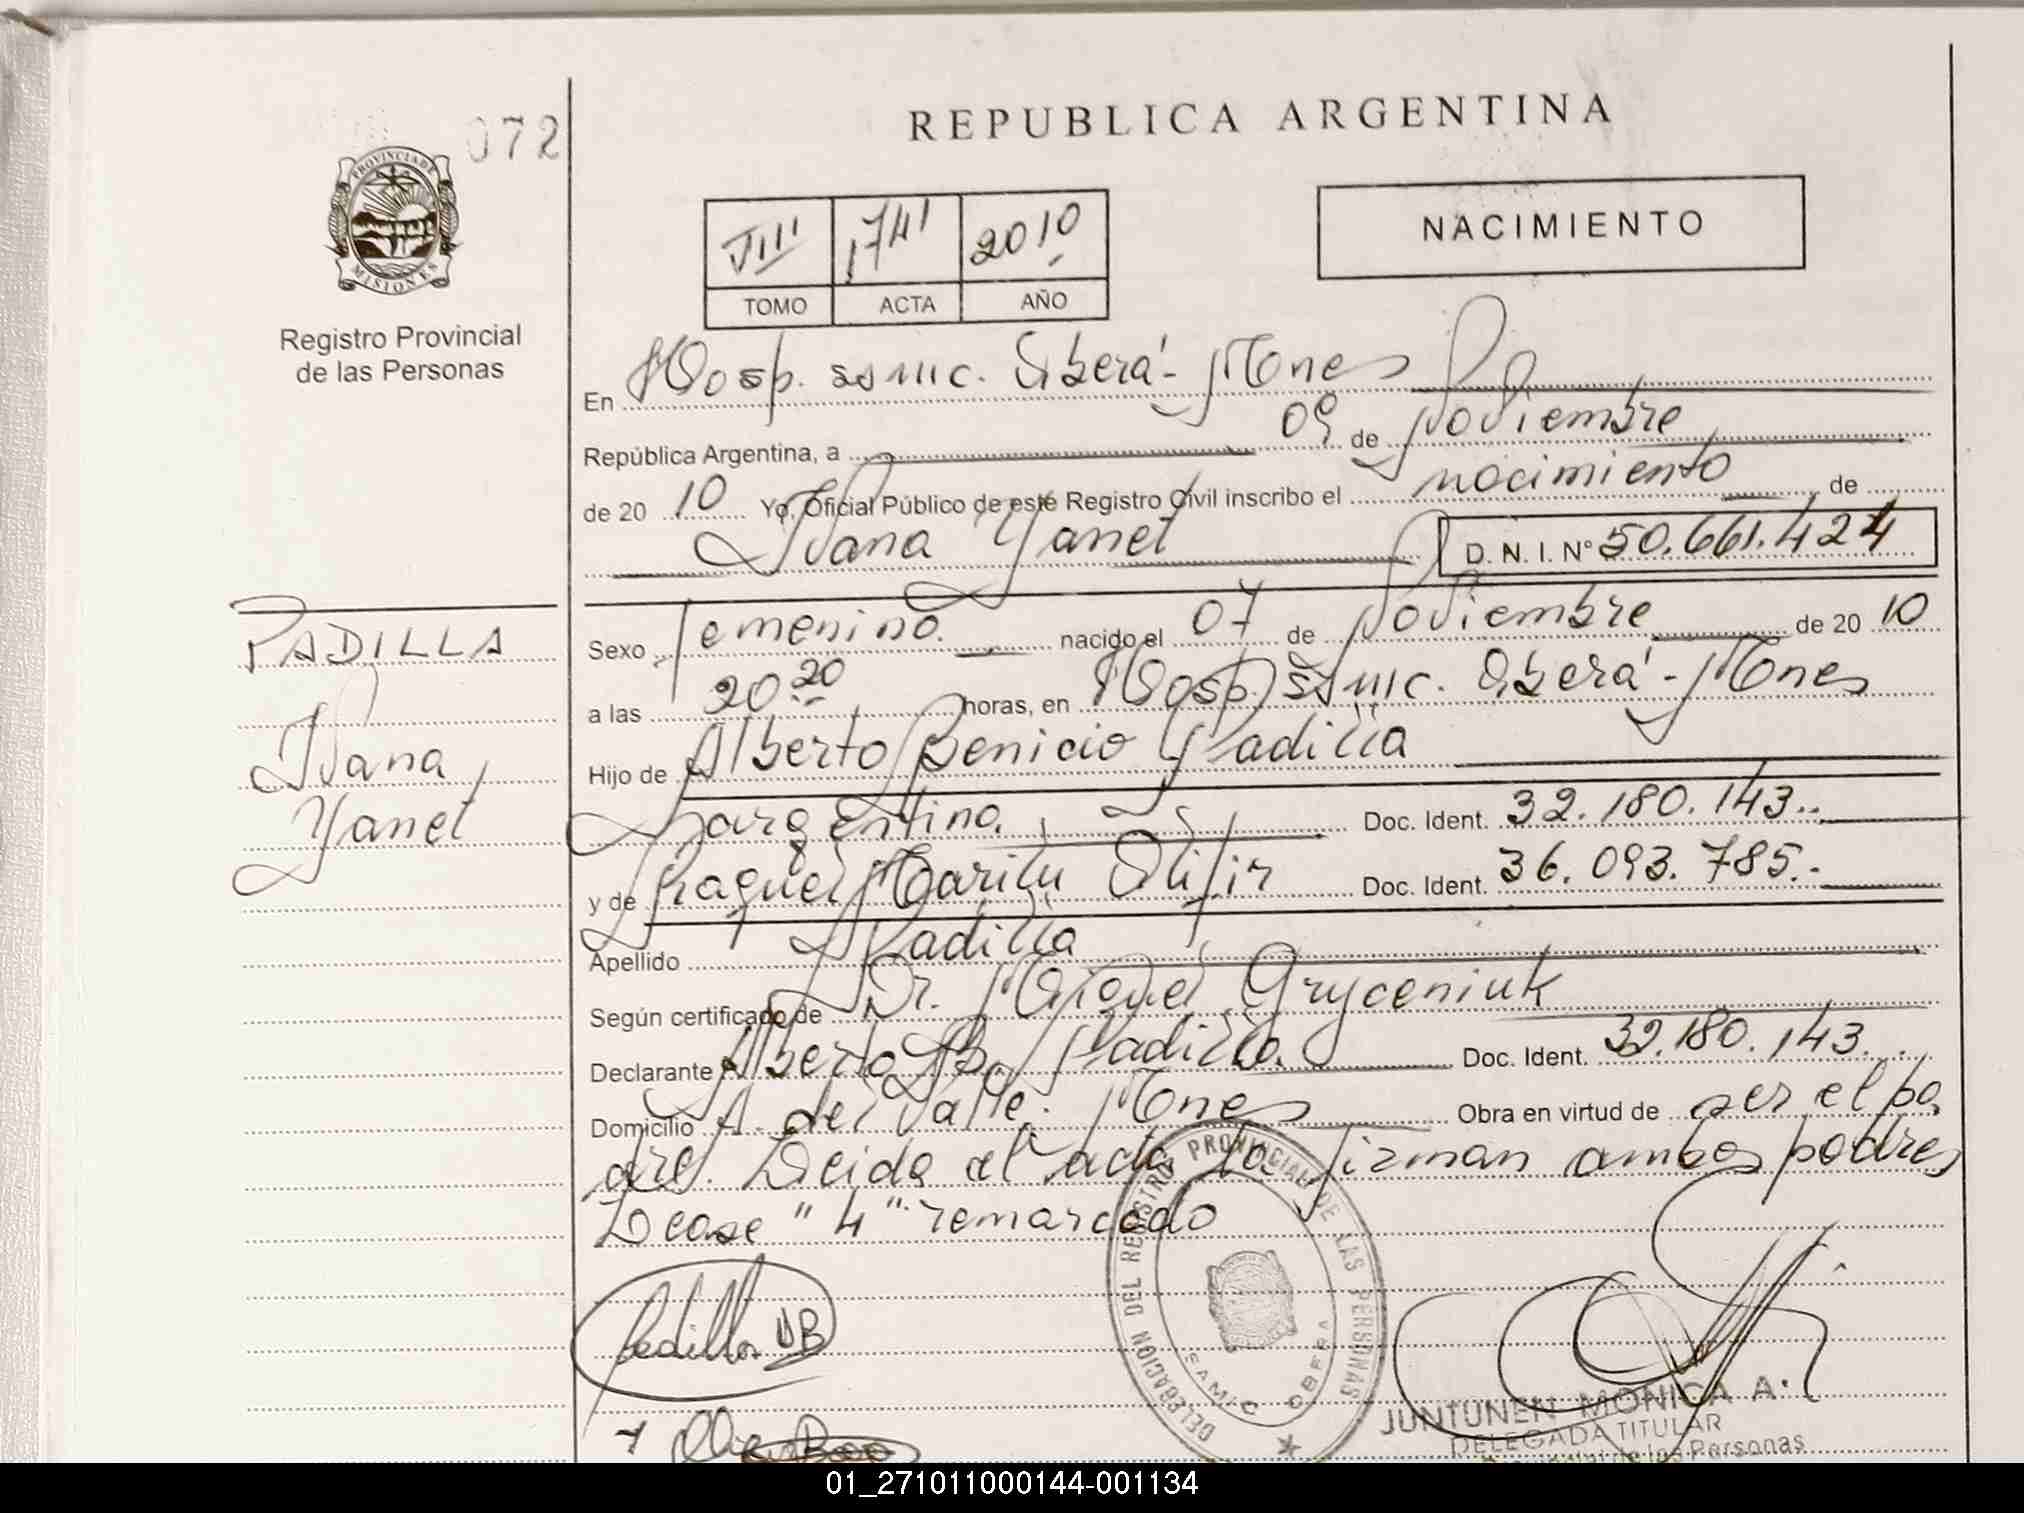 072
REPUBLICA ARGENTINA
PROVINCIA DE
MISIONES
Registro Provincial
de las Personas
VIII 1741 2010
TOMO ACTA AÑO
NACIMIENTO
En Hosp. SAMIC. Oberá - Mnes
República Argentina, a 09 de Noviembre
de 20 10 Yo, Oficial Público de este Registro Civil inscribo el nacimiento de
Ivana Yanet D. N. I. Nº 50.661.424
PADILLA
Ivana
Yanet
Sexo Femenino. nacido el 07 de Noviembre de 20 10
a las 20 20 horas, en Hosp. SAMIC. Oberá - Mnes
Hijo de Alberto Benicio Padilla
argentino. Doc. Ident. 32.180.143.
y de Raquel Marilu Olifir Doc. Ident. 36.093.785.-
Apellido Padilla
Según certificado de Dr. Miguel Gryceniuk
Declarante Alberto B. Padilla. Doc. Ident. 32.180.143.
Domicilio A. del Valle. Mnes Obra en virtud de ser el pa
dre. Leida el acta la firman ambos padres
Lease "4" remarcado
Padilla AB
DELEGACION DEL REGISTRO PROVINCIAL DE LAS PERSONAS
SAMIC OBERA
JUNTUNEN MONICA A.
DELEGADA TITULAR
de las Personas
01_271011000144-001134